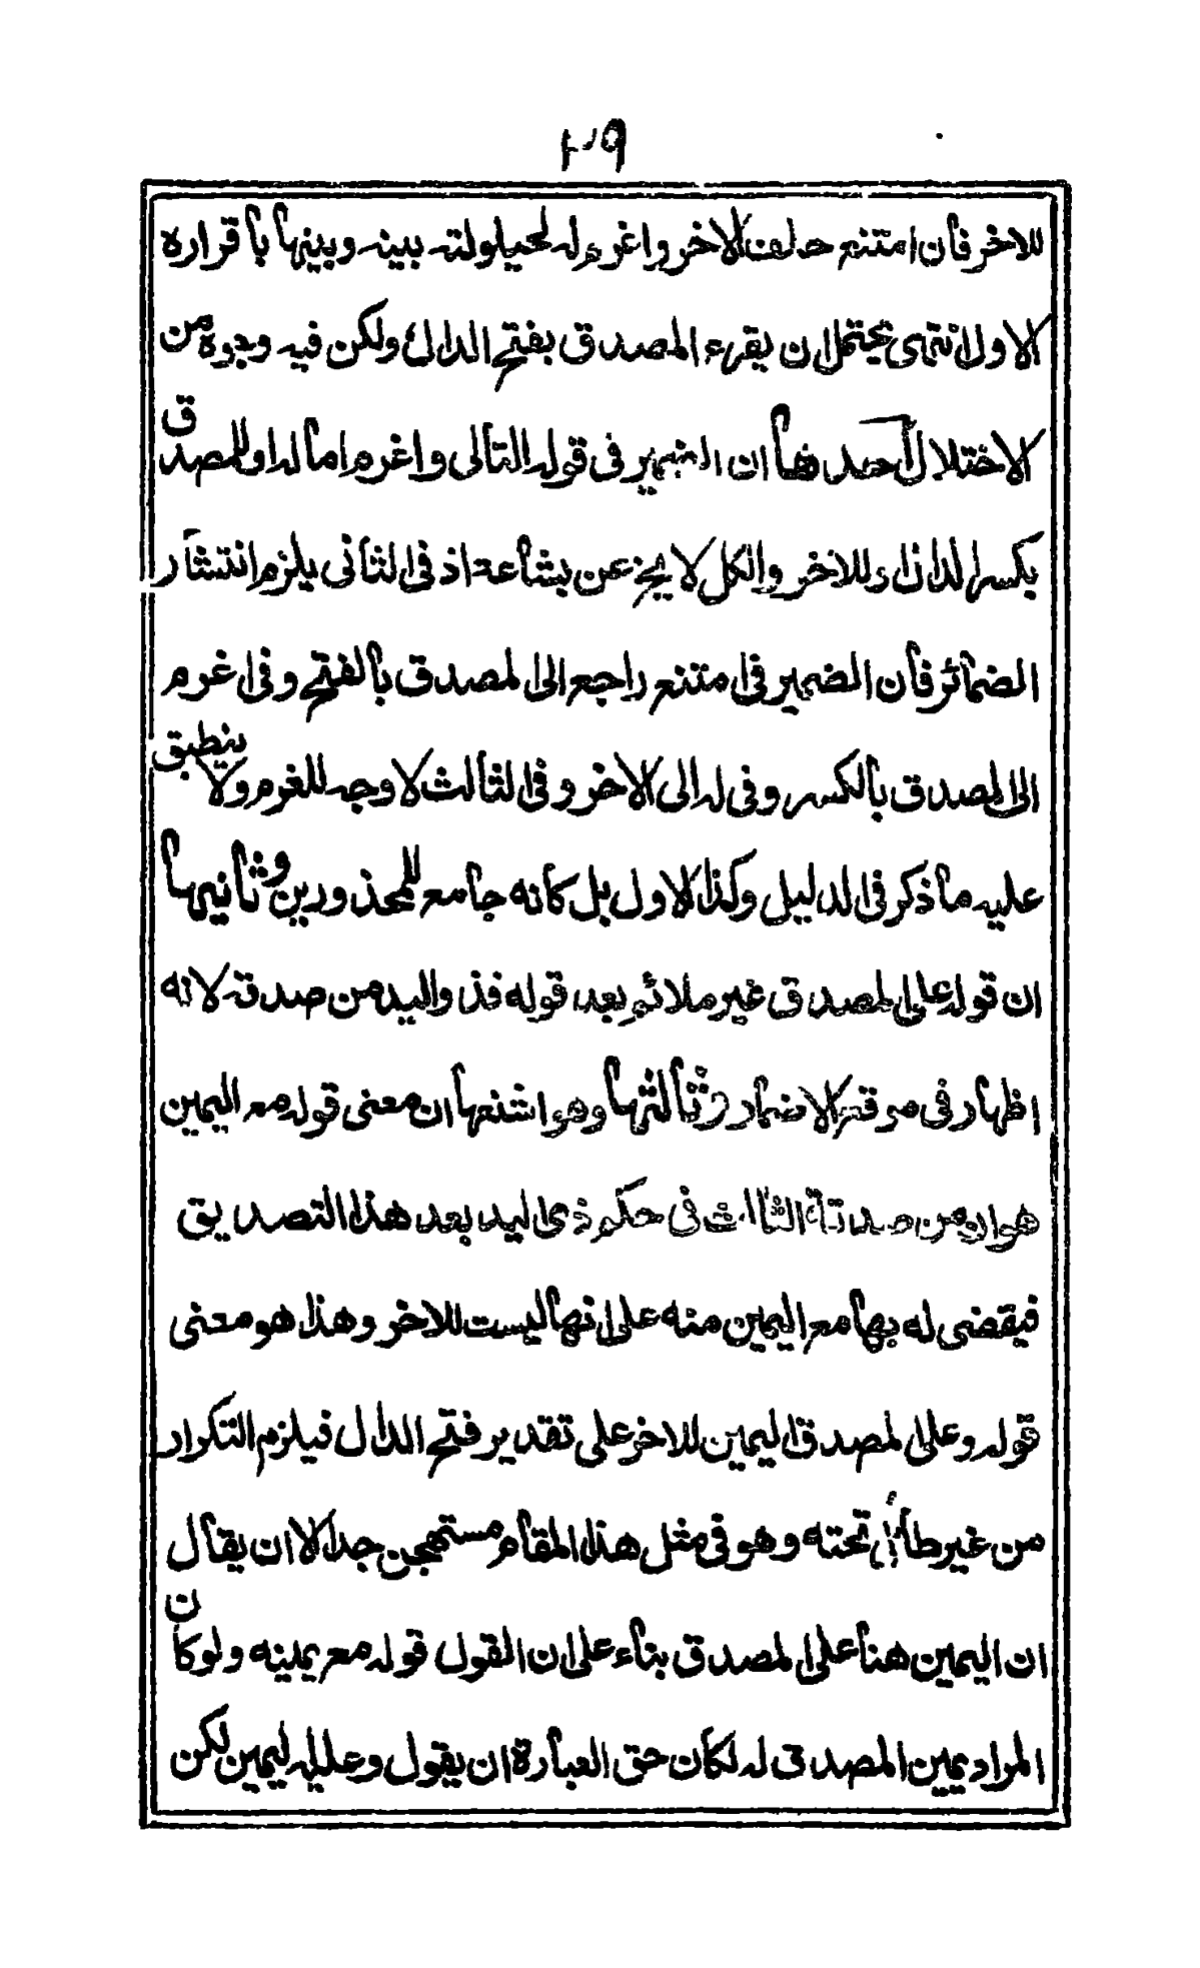 ٢٩
للاخر فأن امتنع حلف الاخر واغرم له لحيلولته بينه وبينها بأقراره
الاول انتهى يحتمل ان يقرء المصدق بفتح الدال ولكن فيه وجوه من
الاختلال احدها ان الضمير فى قوله التالى واغرم اما له او للمصدق
بكسر الدال او للاخر والكل لا يخ عن بشاعة اذ فى الثانى يلزم انتشار
الضمائر فأن الضمير فى امتنع راجع الى المصدق بالفتح وفى اغرم
الى المصدق بالكسر وفى له الى الاخر وفى الثالث لا وجه للغرم ولا ينطبق
عليه ما ذكر فى الدليل وكذا الاول بل كانه جامع للمحذورين وثانيها
ان قوله على المصدق غير ملائم بعد قوله فذو اليد من صدقه لانه
اظهار فى موقع الاضمار وثالثها وهو اشنعها ان معنى قوله مع اليمين
هو ان من صدقه الثالث فى حكم ذى اليد بعد هذا التصديق
فيقضى له بها مع اليمين منه على انها ليست للاخر وهذا هو معنى
قوله وعلى المصدق اليمين للاخر على تقدير فتح الدال فيلزم التكرار
من غير طائل تحته وهو فى مثل هذا المقام مستهجن جدا الا ان يقال
ان اليمين هنا على المصدق بناء على ان القول قوله مع يمينه ولو كان
المراد يمين المصدق له لكان حق العبارة ان يقول وعليه اليمين لكن